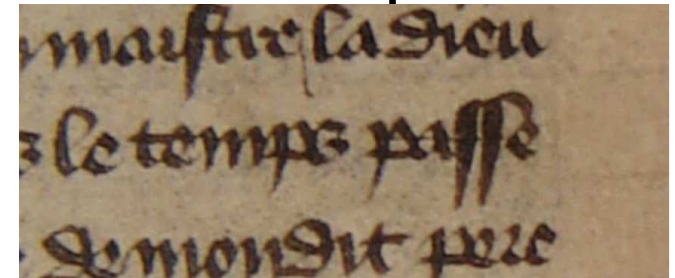 maistre la dieu
le temps passe
de mondit pere